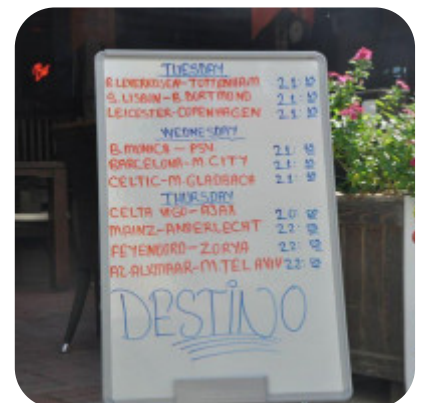 TUESDAY
B.LEVERKUSEN-TOTTENHAM 21:
S.LISBON-B.DORTMOND 21:
LEICESTER-COPENHAGEN 21:
WEDNESDAY
B.MONICA-PSV 21:
BARCELONA-M.CITY 21:
CELTIC-M.GLADBACH 21:
THURSDAY
CELTA VIGO-AJAX 20:
MAINZ-ANDERLECHT 22:
FEYENOORD-ZORYA 22:
AZ-ALKMAAR-M.TEL AVIV 22:
DESTINO